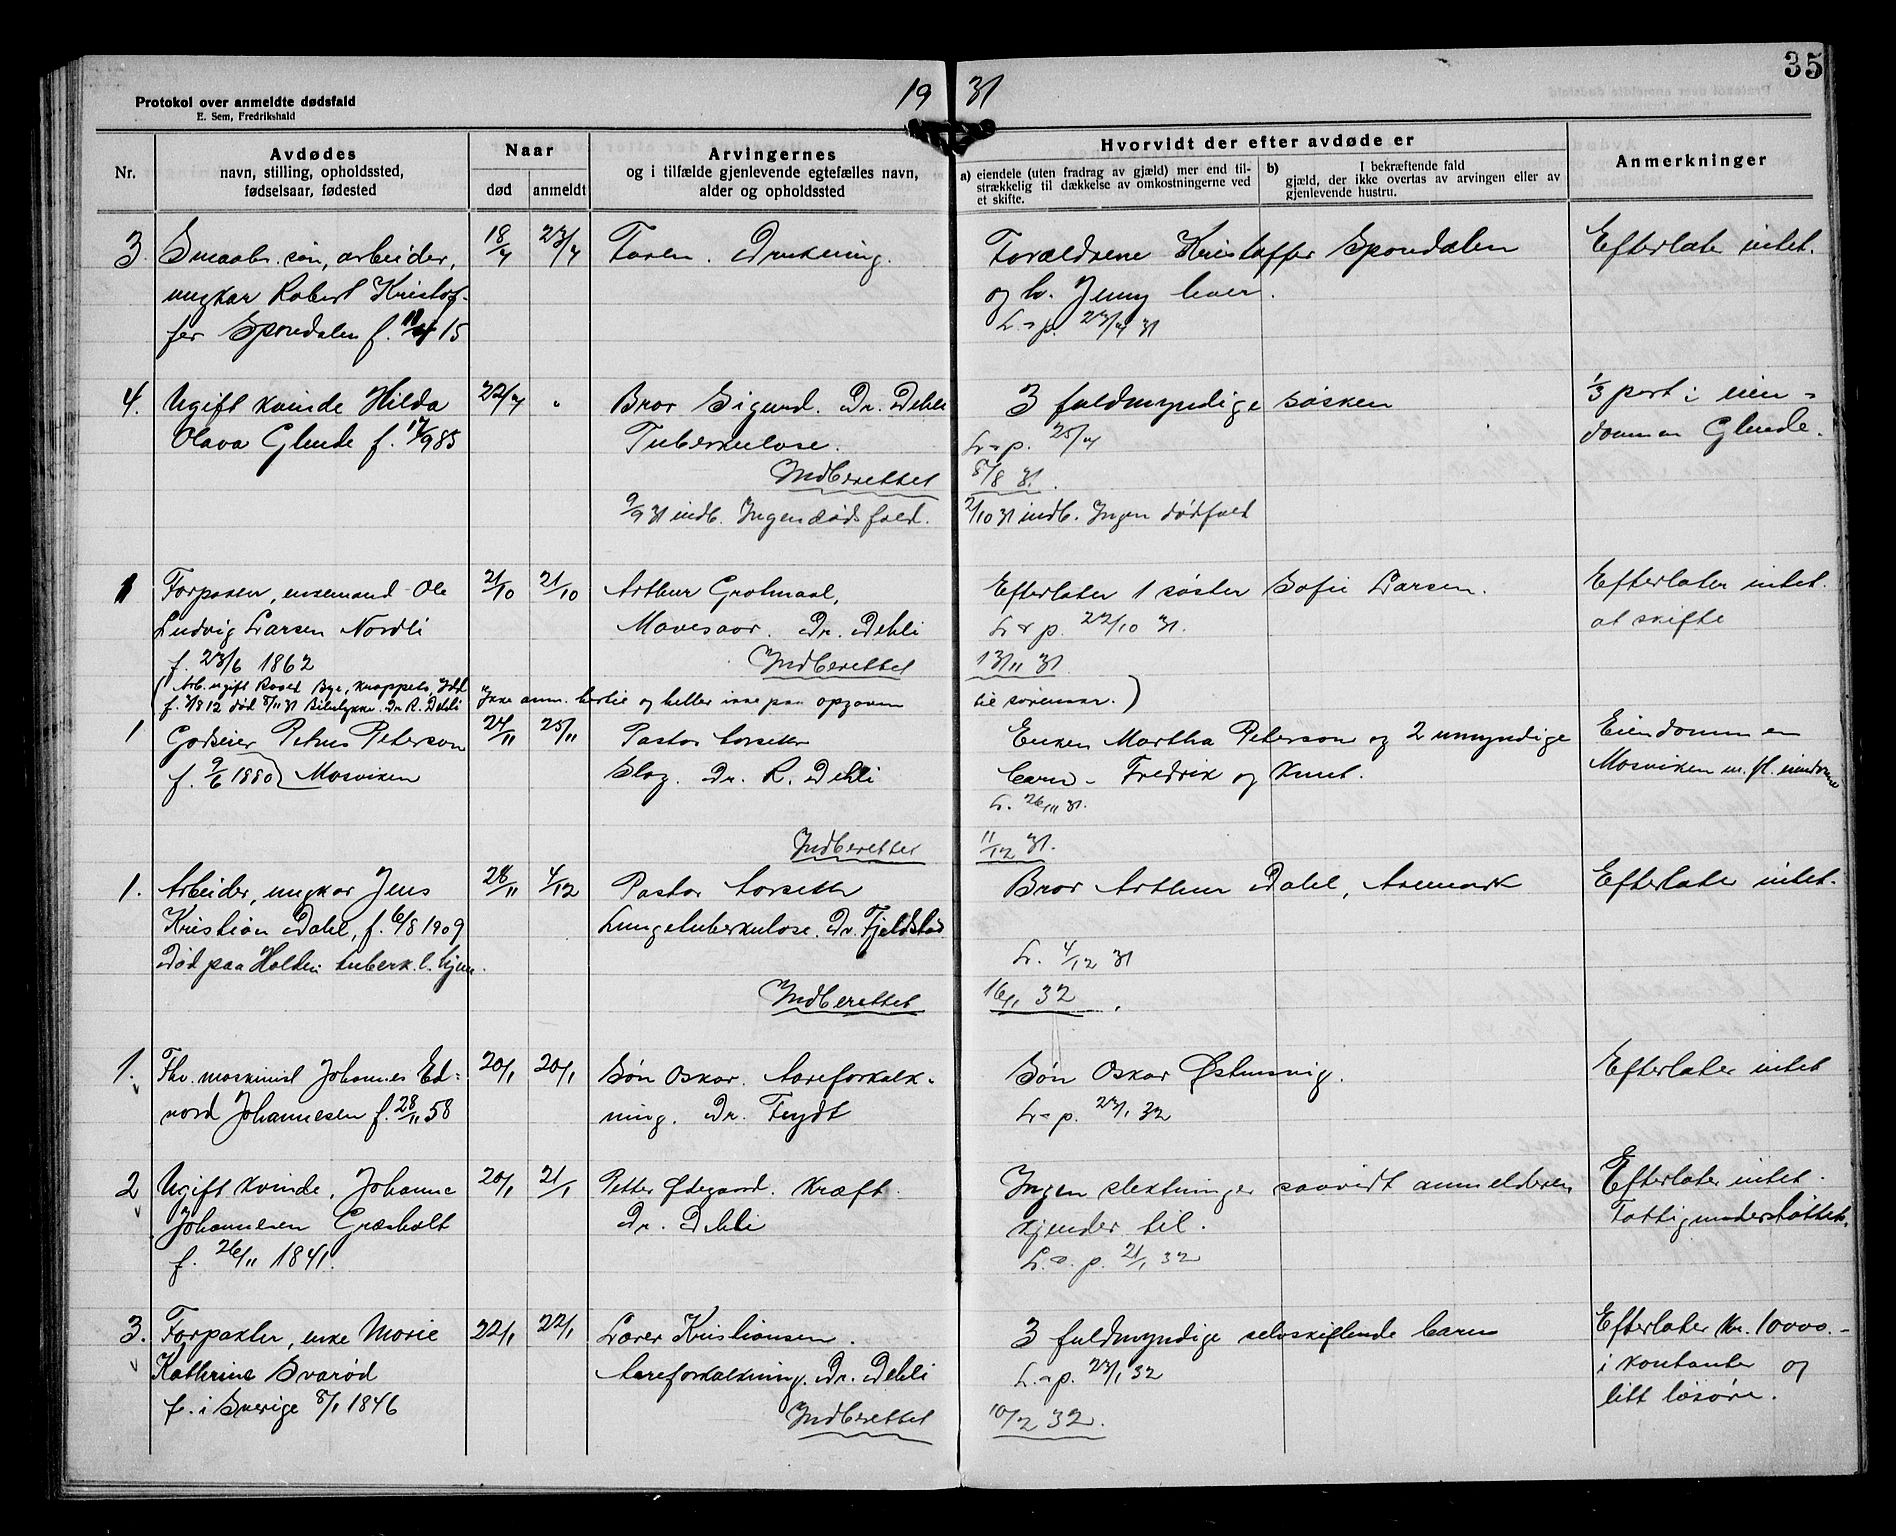 35
19 31
Protokol over anmeldte dødsfald
E. Sem, Fredrikshald
Nr.
Avdødes
navn, stilling, opholdssted,
fødselsaar, fødested
Naar
død
anmeldt
Arvingernes
og i tilfælde gjenlevende egtefælles navn,
alder og opholdssted
Hvorvidt der efter avdøde er
a) eiendele (uten fradrag av gjæld) mer end til-
strækkelig til dækkelse av omkostningerne ved
et skifte.
b) I bekræftende fald
gjæld, der ikke overtas av arvingen eller av
gjenlevende hustru.
Anmerkninger
3. Smaabr. søn, arbeider, 18/4 23/4 Faren. Drukning. Forældrene Kristoffer Spondalen Efterlater intet.
ungkar Robert Kristof- og h. Jenny lever.
fer Spondalen f. 11/4 15 23/4 31
4. Ugift kvinde Hilda 22/4 " Bror Sigurd. Dr. Dehli 3 fuldmyndige søsken 1/3 part i eien-
Olava Glende f. 17/9 85 Tuberkulose. L. p. 25/4 dommen Glende.
Indberettet 5/8 31.
9/9 31 indb. Ingen dødsfald. 2/10 31 indb. Ingen dødfald
1 Forpakter, enkemand Ole 21/10 21/10 Arthur Grotmaal, Efterlater 1 søster Sofie Larsen. Efterlater intet
Ludvig Larsen Nordli Mavesaar. Dr. Dehli L & p. 22/10 31. at skifte
f. 23/6 1862 Indberettet 13/11 31
(Arb. ugift Bye, Knappets, Idd Ikke anm. hertil og heller ikke paa opgaven til sorenskr.)
f. 7/8 12 død 8/11 31 Bilulykke. Dr R. Dehli
1 Godseier Petrus Peterson 24/11 25/11 Pastor Korseth Enken Martha Peterson og 2 umyndige Eiendommen
f. 9/6 1880 Mosviken Slag. Dr. R. Dehli barn - Fredrik og Knut. Mosviken m. fl. eiendomme
L. 26/11 31.
Indberettet 11/12 31.
1. Arbeider, ungkar Jens 28/11 4/12 Pastor Korseth Bror Arthur Dahl, Aremark Efterlater intet.
Kristian Dahl, f. 6/8 1909 Lungetuberkulose. Dr. Fjeldstad
Død paa Halden tuberk.l. hjem. L. 4/12 31
Indberettet 16/1 32
1. Fhv. maskinist Johannes Ed- 20/1 20/1 Søn Oskar. Aareforkalk- Søn Oskar Østensvig. Efterlater intet
vard Johannesen f. 28/11 58 ning. Dr. Feydt L. p. 23/1 32
2 Ugift kvinde, Johanne 20/1 21/1 Petter Ødegaard. Kræft. Ingen slektninger saavidt anmelderen Efterlater intet.
Johannesen Græsholt Dr. Dehli kjender til. Fattigunderstøttet.
f. 26/11 1841. L. p. 21/1 32
3. Forpakter, enke Marie 22/1 22/1 Lærer Kristiansen. 3 fuldmyndige selvskiftende barn Efterlater kr. 10000.-
Kathrine Svarød Aareforkalkning. Dr. Dehli L. p. 23/1 32 i kontanter og
f. i Sverige 8/1 1846 Indberettet 10/2 32. litt løsøre.